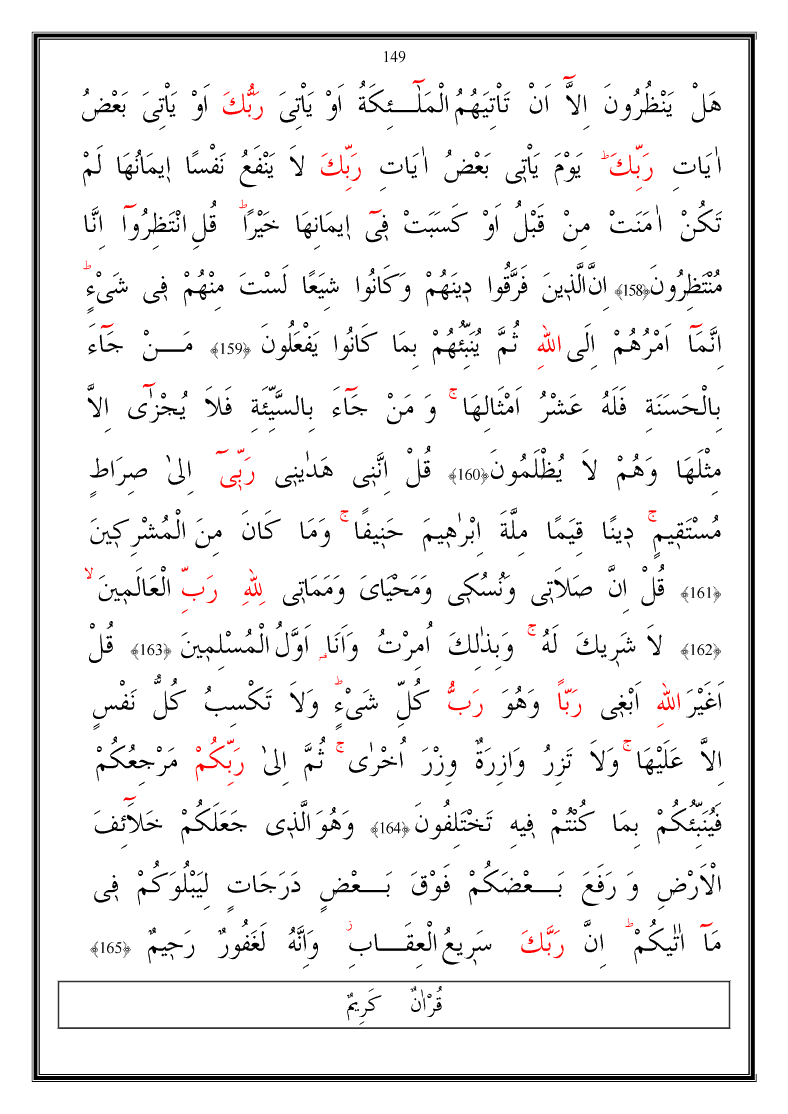 149
هَلْ يَنْظُرُونَ اِلآَّ اَنْ تَاْتِيَهُمُ الْمَلٰٓئِكَةُ اَوْ يَاْتِىَ رَبُّكَ اَوْ يَاْتِىَ بَعْضُ
اٰيَاتِ رَبِّكَۜ يَوْمَ يَاْتٖى بَعْضُ اٰيَاتِ رَبِّكَ لاَ يَنْفَعُ نَفْسًا اٖيمَانُهَا لَمْ
تَكُنْ اٰمَنَتْ مِنْ قَبْلُ اَوْ كَسَبَتْ فٖٓى اٖيمَانِهَا خَيْرًاۜ قُلِ انْتَظِرُوٓا اِنَّا
مُنْتَظِرُونَ ﴿158﴾ اِنَّ الَّذٖينَ فَرَّقُوا دٖينَهُمْ وَكَانُوا شِيَعًا لَسْتَ مِنْهُمْ فٖى شَىْءٍۜ
اِنَّمَٓا اَمْرُهُمْ اِلَى اللهِ ثُمَّ يُنَبِّئُهُمْ بِمَا كَانُوا يَفْعَلُونَ ﴿159﴾ مَنْ جَٓاءَ
بِالْحَسَنَةِ فَلَهُ عَشْرُ اَمْثَالِهَاۚ وَ مَنْ جَٓاءَ بِالسَّيِّئَةِ فَلاَ يُجْزٰٓى اِلاَّ
مِثْلَهَا وَهُمْ لاَ يُظْلَمُونَ ﴿160﴾ قُلْ اِنَّنٖى هَدٰينٖى رَبّٖٓى اِلىٰ صِرَاطٍ
مُسْتَقٖيمٍۚ دٖينًا قِيَمًا مِلَّةَ اِبْرٰهٖيمَ حَنٖيفًاۚ وَمَا كَانَ مِنَ الْمُشْرِكٖينَ
﴿161﴾ قُلْ اِنَّ صَلاَتٖى وَنُسُكٖى وَمَحْيَاىَ وَمَمَاتٖى لِلّٰهِ رَبِّ الْعَالَمٖينَۙ
﴿162﴾ لاَ شَرٖيكَ لَهُۚ وَبِذٰلِكَ اُمِرْتُ وَاَنَا اَوَّلُ الْمُسْلِمٖينَ ﴿163﴾ قُلْ
اَغَيْرَ اللهِ اَبْغٖى رَبّاً وَهُوَ رَبُّ كُلِّ شَىْءٍۜ وَلاَ تَكْسِبُ كُلُّ نَفْسٍ
اِلاَّ عَلَيْهَاۚ وَلاَ تَزِرُ وَازِرَةٌ وِزْرَ اُخْرٰىۚ ثُمَّ اِلىٰ رَبِّكُمْ مَرْجِعُكُمْ
فَيُنَبِّئُكُمْ بِمَا كُنْتُمْ فٖيهِ تَخْتَلِفُونَ ﴿164﴾ وَهُوَ الَّذٖى جَعَلَكُمْ خَلآَئِفَ
الْاَرْضِ وَ رَفَعَ بَعْضَكُمْ فَوْقَ بَعْضٍ دَرَجَاتٍ لِيَبْلُوَكُمْ فٖى
مَٓا اٰتٰيكُمْۜ اِنَّ رَبَّكَ سَرٖيعُ الْعِقَابِۘ وَاِنَّهُ لَغَفُورٌ رَحٖيمٌ ﴿165﴾
قُرْاٰنٌ كَرٖيمٌ